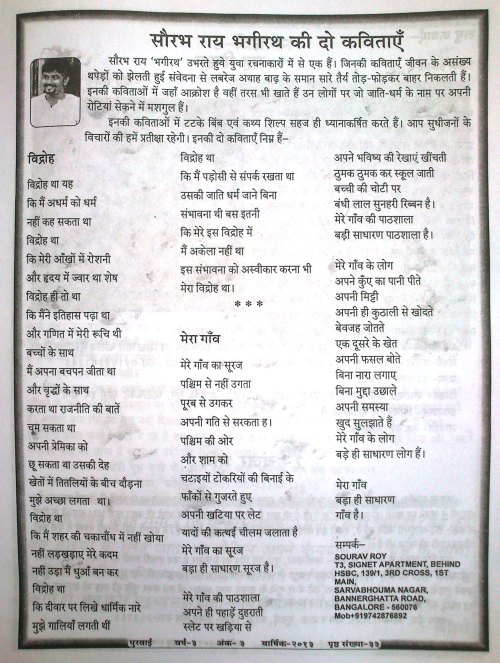 सौरभ राय भगीरथ की दो कविताएँ
सौरभ राय 'भगीरथ' उभरते हुये युवा रचनाकारों में से एक हैं। जिनकी कविताएँ जीवन के असंख्य
थपेड़ों को झेलती हुईं संवेदना से लबरेज अथाह बाढ़ के समान सारे तैर्य तोड़-फोड़कर बाहर निकलती हैं।
इनकी कविताओं में जहाँ आक्रोश है वहीं तरस भी खाते हैं उन लोगों पर जो जाति-धर्म के नाम पर अपनी
रोटियां सेकने में मशगुल हैं।
इनकी कविताओं में टटके बिंब एवं कथ्य शिल्प सहज ही ध्यानाकर्षित करते हैं। आप सुधीजनों के
विचारों की हमें प्रतीक्षा रहेगी। इनकी दो कविताएँ निम्न हैं–
विद्रोह
विद्रोह था यह
कि मैं अधर्म को धर्म
नहीं कह सकता था
विद्रोह था
कि मेरी आँखों में रोशनी
और हृदय में ज्वार था शेष
विद्रोह हीं तो था
कि मैंने इतिहास पढ़ा था
और गणित में मेरी रूचि थी
बच्चों के साथ
मैं अपना बचपन जीता था
और वृद्धों के साथ
करता था राजनीति की बातें
चूम सकता था
अपनी प्रेमिका को
छू सकता था उसकी देह
खेतों में तितलियों के बीच दौड़ना
मुझे अच्छा लगता था।
विद्रोह था
कि मैं शहर की चकाचौंध में नहीं खोया
नहीं लड़खड़ाए मेरे कदम
नहीं उड़ा मैं धुआँ बन कर
विद्रोह था
कि दीवार पर लिखे धार्मिक नारे
मुझे गालियाँ लगती थीं
विद्रोह था
कि मैं पड़ोसी से संपर्क रखता था
उसकी जाति धर्म जाने बिना
संभावना थी बस इतनी
कि मेरे इस विद्रोह में
मैं अकेला नहीं था
इस संभावना को अस्वीकार करना भी
मेरा विद्रोह था।
* * *
मेरा गाँव
मेरे गाँव का सूरज
पश्चिम से नहीं उगता
पूरब से उगकर
अपनी गति से सरकता ह।
पश्चिम की ओर
और शाम को
चटाइयों टोकरियों की बिनाई के
फाँकों से गुजरते हुए
अपनी खटिया पर लेट
यादों की कत्थई चीलम जलाता है
मेरे गाँव का सूरज
बड़ा ही साधारण सूरज है।
मेरे गाँव की पाठशाला
अपने ही पहाड़ें दुहराती
स्लेट पर खड़िया से
अपने भविष्य की रेखाएं खींचती
ठुमक ठुमक कर स्कूल जाती
बच्ची की चोटी पर
बंधी लाल सुनहरी रिब्बन है।
मेरे गाँव की पाठशाला
बड़ी साधारण पाठशाला है।
मेरे गाँव के लोग
अपने कुँए का पानी पीते
अपनी मिट्टी
अपनी ही कुठाली से खोदते
बेवजह जोतते
एक दूसरे के खेत
अपनी फसल बोते
बिना नारा लगाए
बिना मुद्दा उछाले
अपनी समस्या
खुद सुलझाते हैं
मेरे गाँव के लोग
बड़े ही साधारण लोग हैं।
मेरा गाँव
बड़ा ही साधारण
गाँव है।
सम्पर्क–
SOURAV ROY
T3, SIGNET APARTMENT, BEHIND
HSBC, 139/1, 3RD CROSS, 1ST
MAIN,
SARVABHOUMA NAGAR,
BANNERGHATTA ROAD,
BANGALORE - 560076
Mob+919742876892
पुरवाई वर्ष-३ अंक- ३ वार्षिक-२०१३ पृष्ठ संख्या-३३